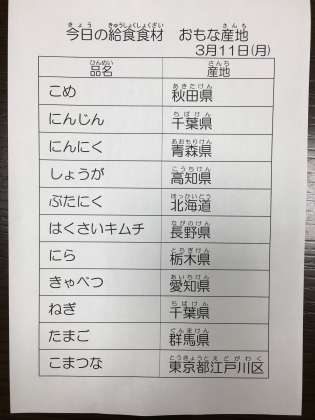 今日の給食食材　おもな産地
3月11日(月)
品名 産地
こめ 秋田県
にんじん 千葉県
にんにく 青森県
しょうが 高知県
ぶたにく 北海道
はくさいキムチ 長野県
にら 栃木県
きゃべつ 愛知県
ねぎ 千葉県
たまご 群馬県
こまつな 東京都江戸川区